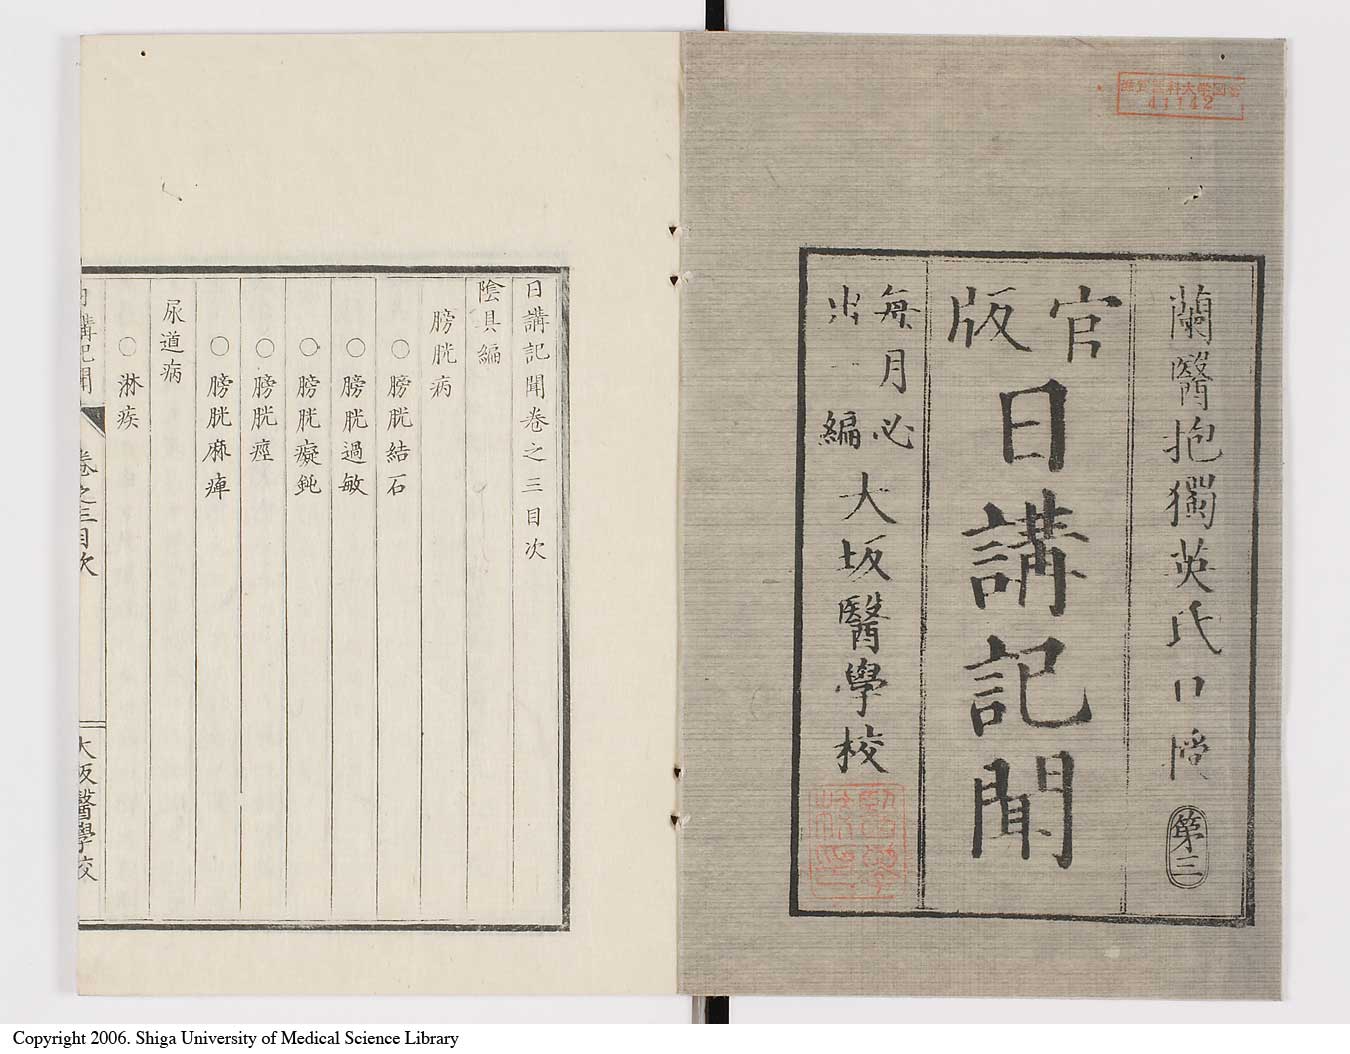 蘭醫抱獨英氏口授 第三
官版
日講記聞
每月必出一編
大坂醫學校
41142
日講記聞卷之三目次
陰具編
膀胱病
○膀胱結石
○膀胱過敏
○膀胱癡鈍
○膀胱痙
○膀胱麻痺
尿道病
○淋疾
日講記聞 卷之三目次 大坂醫學校
Copyright 2006. Shiga University of Medical Science Library